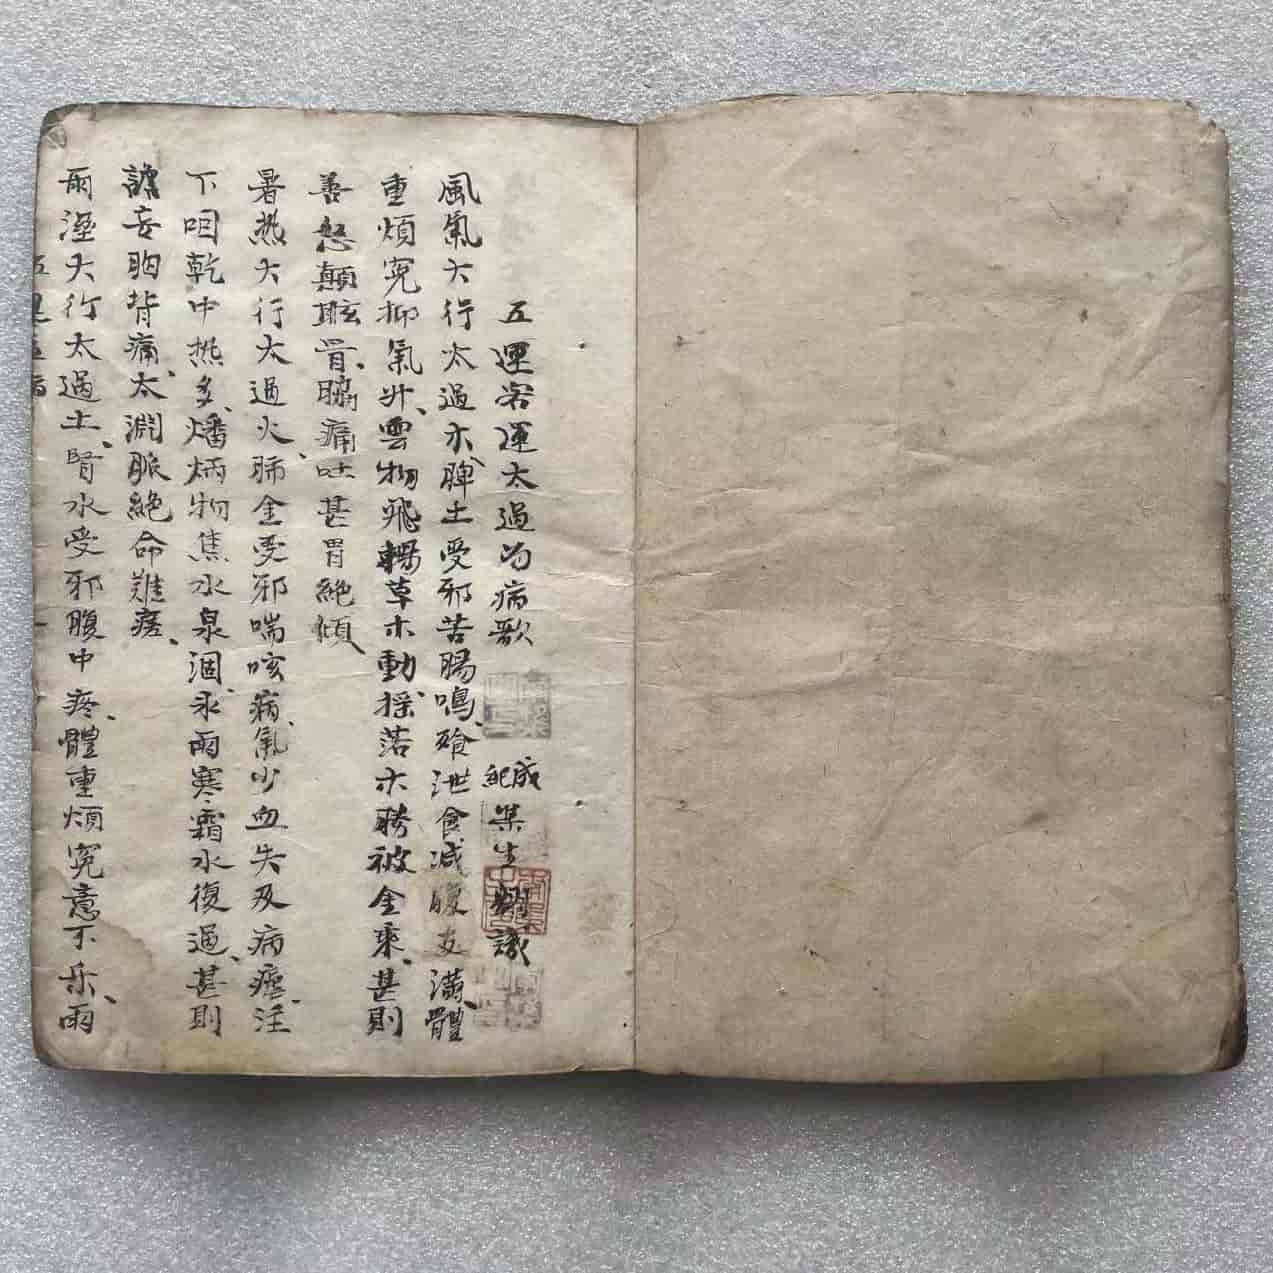 五運客運太過為病歌
成紀 渠生翔識
風氣大行太過木、脾土受邪苦腸鳴、飧泄食減腹支滿、體
重煩冤抑氣升、雲物飛颺草木動、搖落木勝被金乘、甚則
善怒顛眩冒、脇痛吐甚胃絕傾、
暑热大行太過火、肺金受邪喘咳病、氣少血失及病瘧、注
下咽乾中热多、燔焫物焦水泉涸、冰雨寒霜水復過、甚則
譫妄胸背痛、太淵脈絕命難瘥、
雨溼大行太過土、腎水受邪腹中疼、體重煩冤意不乐、雨